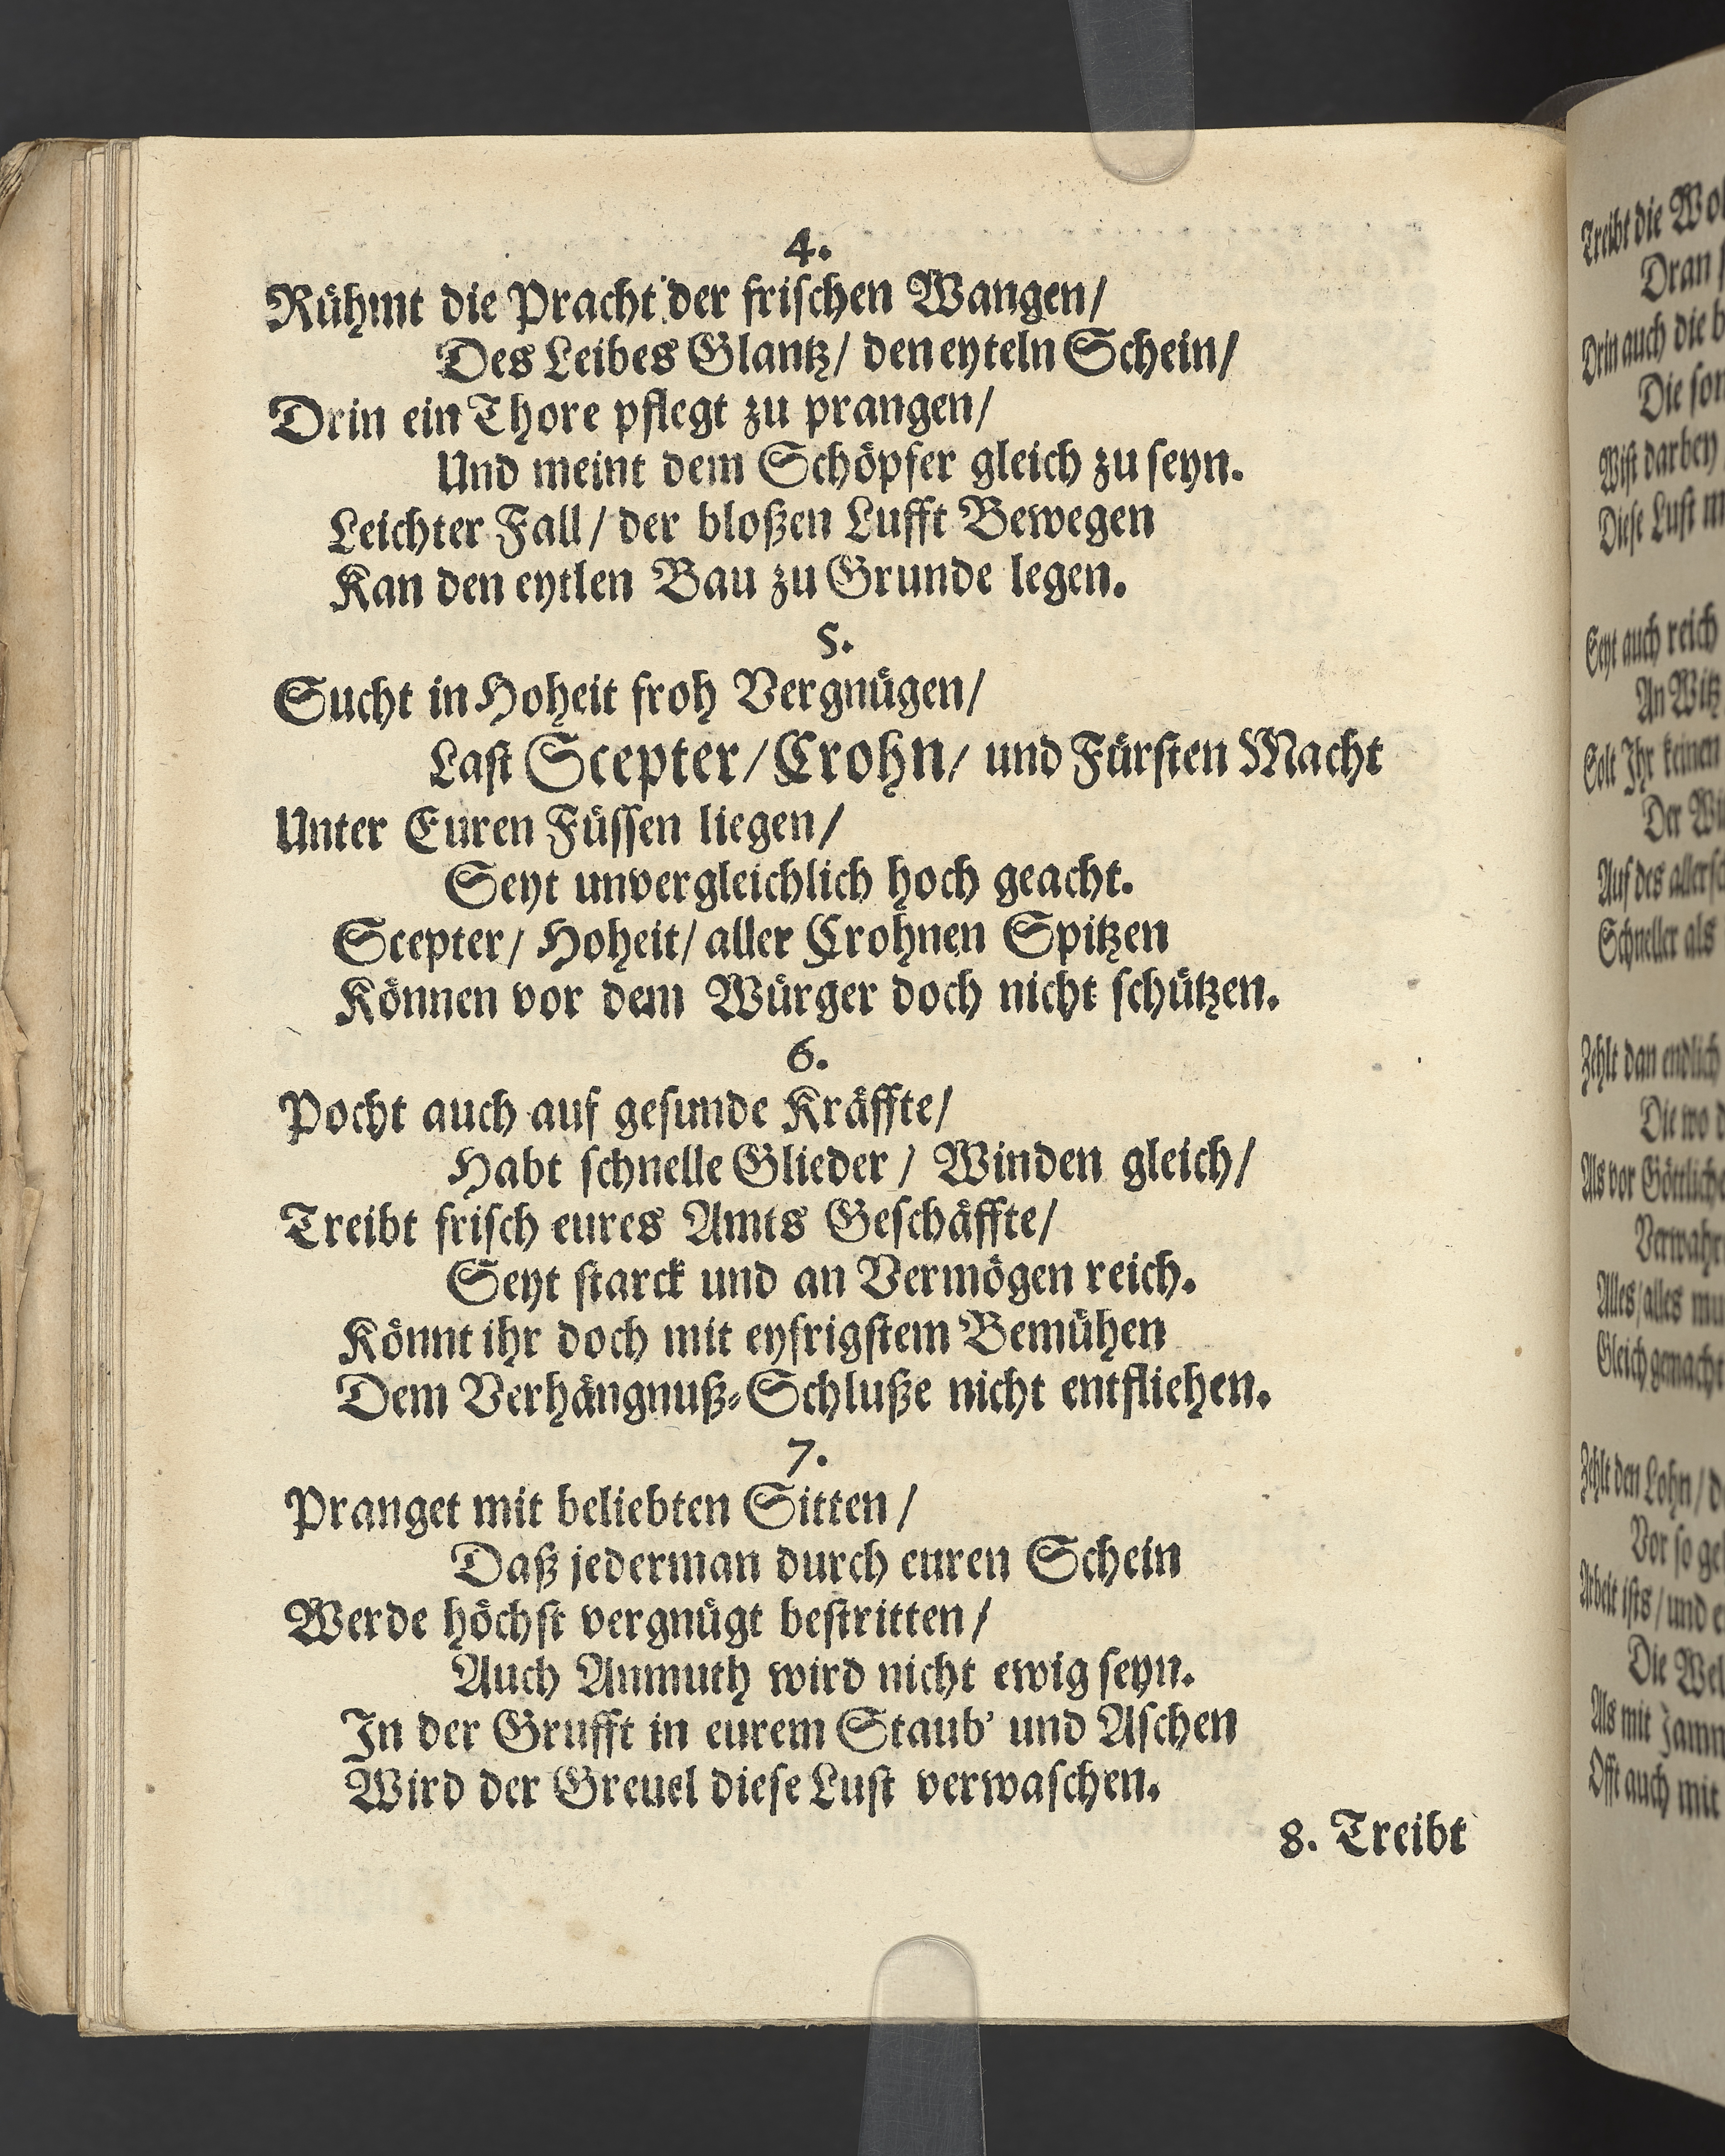 4.
Rühmt die Pracht der frischen Wangen/
Des Leibes Glantz/ den eyteln Schein/
Drin ein Thore pflegt zu prangen/
Und meint dem Schöpfer gleich zu seyn.
Leichter Fall/ der bloßen Lufft Bewegen
Kan den eytlen Bau zu Grunde legen.
5.
Sucht in Hoheit froh Vergnügen/
Last Scepter/ Crohn/ und Fürsten Macht
Unter Euren Füssen liegen/
Seyt unvergleichlich hoch geacht.
Scepter/ Hoheit/ aller Crohnen Spitzen
Können vor dem Würger doch nicht schützen.
6.
Pocht auch auf gesunde Kräffte/
Habt schnelle Glieder/ Winden gleich/
Treibt frisch eures Amts Geschäffte/
Seyt starck und an Vermögen reich.
Könnt ihr doch mit eyfrigstem Bemühen
Dem Verhängnuß-Schluße nicht entfliehen.
7.
Pranget mit beliebten Sitten/
Daß jederman durch euren Schein
Werde höchst vergnügt bestritten/
Auch Anmuth wird nicht ewig seyn.
In der Grufft in eurem Staub' und Aschen
Wird der Greuel diese Lust verwaschen.
8. Treibt
Treibt die
Dran
Drin auch die
Die
Wist darbey
Diese Lust
Seyt auch reich
An Witz
Solt Ihr keinen
Der
Auf des
Schneller als
Zehlt dan endlich
Die wo
Als vor
Alles/ alles
Gleich gemacht
Zehlt den Lohn/
Vor so
Arbeit ists/ und
Die
Als mit
Offt auch mit